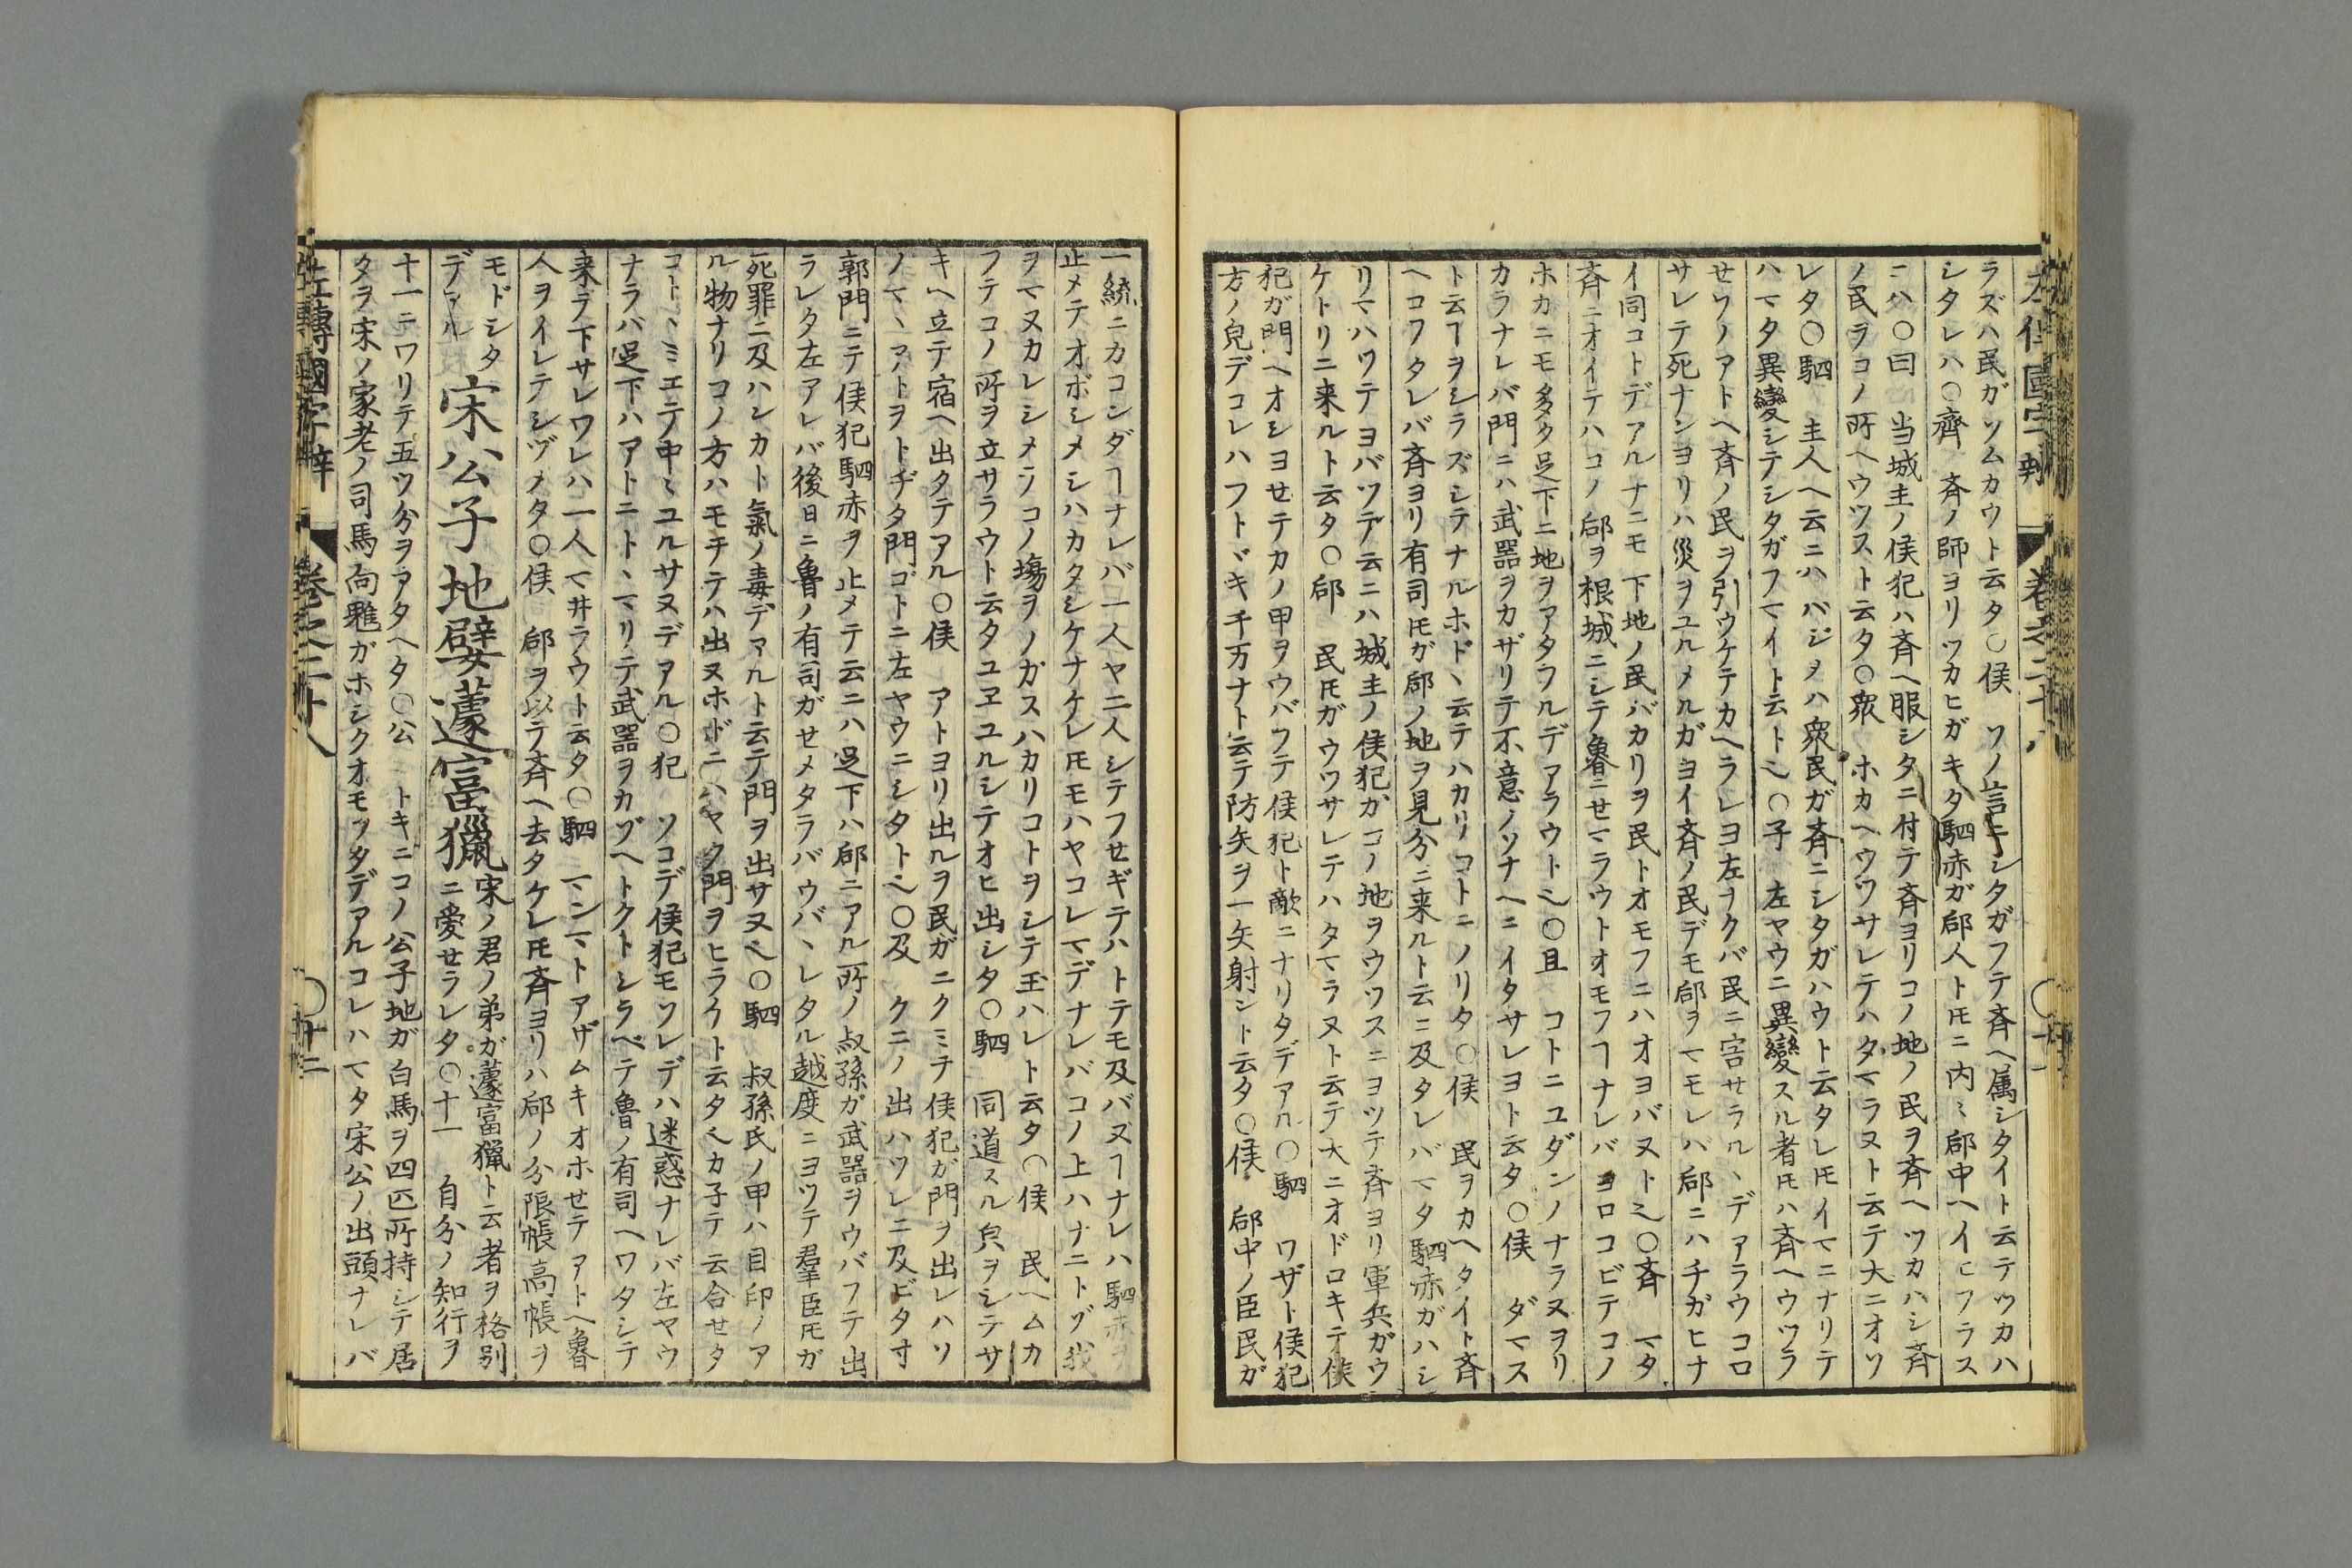 ラズハ民ガソムカウト云タ〇侯　ソノ言ニシタガフテ斉ヘ属シタイト云テツカハ
シタレハ〇齊　斉ノ師ヨリツカヒガキタ駟赤ガ郈人トモニ内〻郈中ヘイヒフラス
ニハ〇曰　当城主ノ侯犯ハ斉ヘ服シタニ付テ斉ヨリコノ地ノ民ヲ斉ヘツカハシ斉
ノ民ヲコノ所ヘウツスト云タ〇衆　ホカヘウツサレテハタマラヌト云テ大ニオソ
レタ〇駟　主人ヘ云ニハバジヲハ衆民ガ斉ニシタガハウト云タレ𪜈イマニナリテ
ハマタ異變シテシタガフマイト云ト也〇子　左ヤウニ異變スル者𪜈ハ斉ヘウツラ
せソノアトヘ斉ノ民ヲ引ウケテカヘラレヨ左ヲクバ民ニ害サラルヽデアラウコロ
サレテ死ナンヨリハ災ヲユルメルガヨイ斉ノ民デモ郈ヲマモレハ郈ニハチガヒナ
イ同コトデアルナニモ下地ノ民バカリヲ民トオモフニハオヨバヌト也〇斉　マタ
斉ニオイテハコノ郈ヲ根城ニシテ魯ニせマラウトオモフヿナレバヨロコビテコノ
ホカニモ多ク足下ニ地ヲアタフルデアラウト也〇且　コトニユダンノナラヌヲリ
カラナレバ門ニハ武器ヲカザリテ不意ノソナヘニイタサレヨト云タ〇侯　ダマス
ト云ヿヲシラズシテナルホドヽ云テハカリコトニノリタ〇侯　民ヲカヘタイト斉
ヘコフタレバ斉ヨリ有司𪜈ガ郈ノ地ヲ見分ニ来ルト云ニ及タレバマタ駟赤ガハシ
リマハツテヨバツテ云ニハ城主ノ侯犯ガコノ地ヲウツスニヨツテ斉ヨリ軍兵ガウ
ケトリニ来ルト云タ〇郈　民𪜈ガウツサレテハタマラヌト云テ大ニオドロキテ侯
犯ガ門ヘオシヨせテカノ甲ヲウバフテ侯犯ト敵ニナリタデアル〇駟　ワザト侯犯
方ノ皃デコレハフトヾキ千万ナト云テ防矢ヲ一矢射ント云タ〇侯　郈中ノ臣民ガ
一統ニカコンダヿナレバ一人ヤ二人シテフせギテハトテモ及バヌヿナレハ駟赤ヲ
止メテオボシメシハカタシケナケレ𪜈モハヤコレマデナレバコノ上ハナニトゾ我
ヲマヌカレシメテコノ塲ヲノガスハカリコトヲシテ玉ハレト云タ〇侯　民ヘムカ
フテコノ所ヲ立サラウト云タユヱユルシテオヒ出シタ〇駟　同道スル皃ヲシテサ
キヘ立テ宿ヘ出タテアル〇侯　アトヨリ出ルヲ民ガニクミテ侯犯ガ門ヲ出レハソ
ノマヽアトヲトヂタ門ゴトニ左ヤウニシタト也〇及　クニノ出ハツレニ及ビタ寸
郭門ニテ侯犯駟赤ヲ止メテ云ニハ足下ハ郈ニアル所ノ叔孫ガ武器ヲウバフテ出
ラレタ左アレバ後日ニ魯ノ有司ガせメタラバウバヽレタル越度ニヨツテ羣臣𪜈ガ
死罪ニ及ハシカト氣ノ毒デアルト云テ門ヲ出サヌ也〇駟　叔孫氏ノ甲ハ目印ノア
ル物ナリコノ方ハモチテハ出ヌホドニハヤク門ヲヒラケト云タ也カ子テ云合せタ
コトヽミエテ中〻ユルサヌデアル〇犯　ソコデ侯犯モソレデハ迷惑ナレバ左ヤウ
ナラバ足下ハアトニトヽマリテ武器ヲカゾヘトクトシラベテ魯ノ有司ヘワタシテ
来ラ下サレワレハ一人マ井ラウト云タ〇駟　マンマトアザムキオホせテアトヘ魯
人ヲイレテシヅメタ〇侯　郈ヲ以テ斉ヘ去タケレ𪜈斉ヨリハ郈ノ分限帳高帳ヲ
モドシタ
デアル
宋公子地嬖蘧富獵
宋ノ君ノ弟ガ蘧富獵ト云者ヲ格別
ニ愛せラレタ〇十一　自分ノ知行ヲ
十一ニワリテ五ツ分ヲアタヘタ〇公　トキニコノ公子地ガ白馬ヲ四匹所持シテ居
タヲ宋ノ家老ノ司馬向魋ガホシクオモツタデアルコレハマタ宋公ノ出頭ナレバ
左傳國字辯　卷之二十八　〇十二